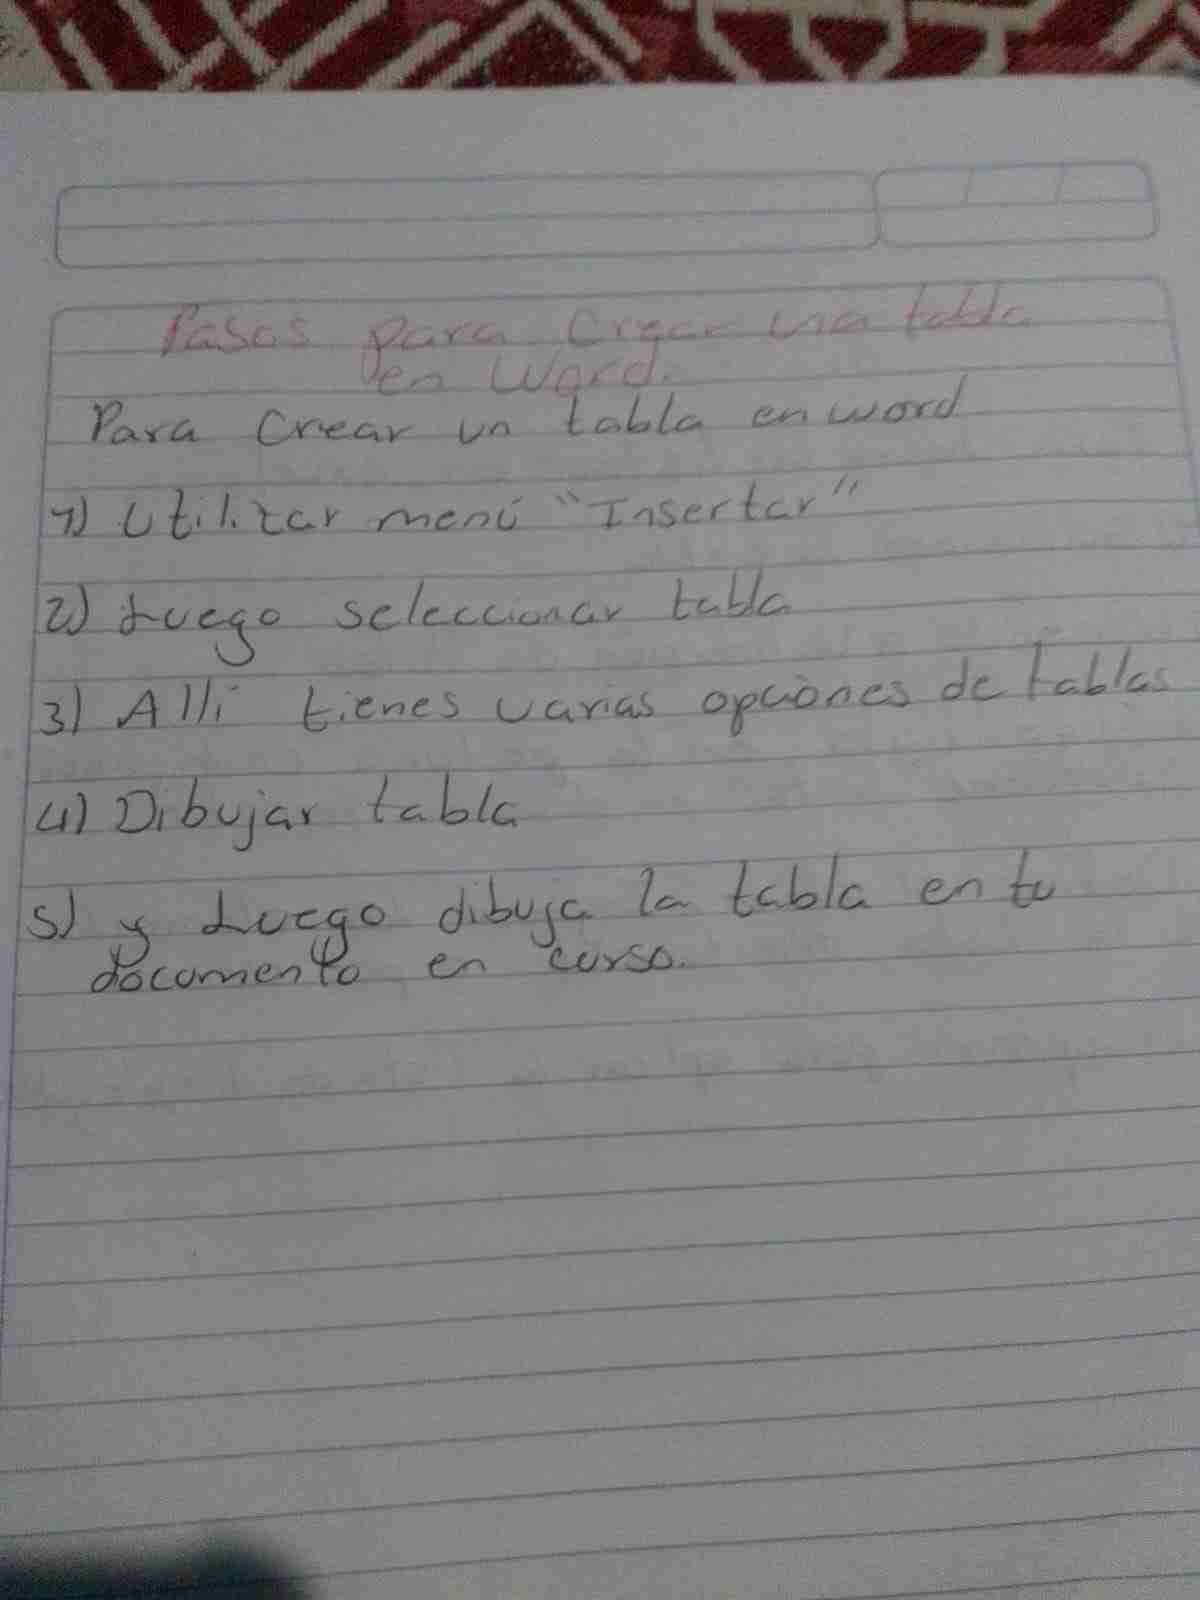 Pasos para Crear una tabla
en Word.
Para Crear un tabla en word
1) Utilizar menú "Insertar"
2) Luego seleccionar tabla
3) Alli tienes varias opciones de tablas
4) Dibujar tabla
5) y Luego dibuja la tabla en tu
documento en curso.